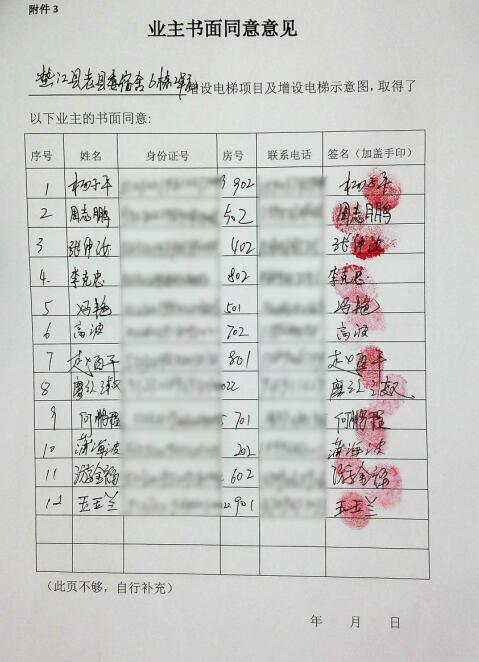 附件 3
业主书面同意意见
垫江县老县委宿舍6栋2单元增设电梯项目及增设电梯示意图，取得了
以下业主的书面同意：
序号 姓名 身份证号 房号 联系电话 签名（加盖手印）
1 902
2 周志鹏 502 周志鹏
3 402
4. 李克忠 802 李克忠
5 冯艳 501 冯艳
6 高波 702 高波
7 赵西平 801 赵西平
8 廖
9 何鹏程 701 何鹏程
10 蒲海波 202 蒲海波
11 游金福 602 游金福
12 王玉兰 901 王玉兰
（此页不够，自行补充）
年 月 日